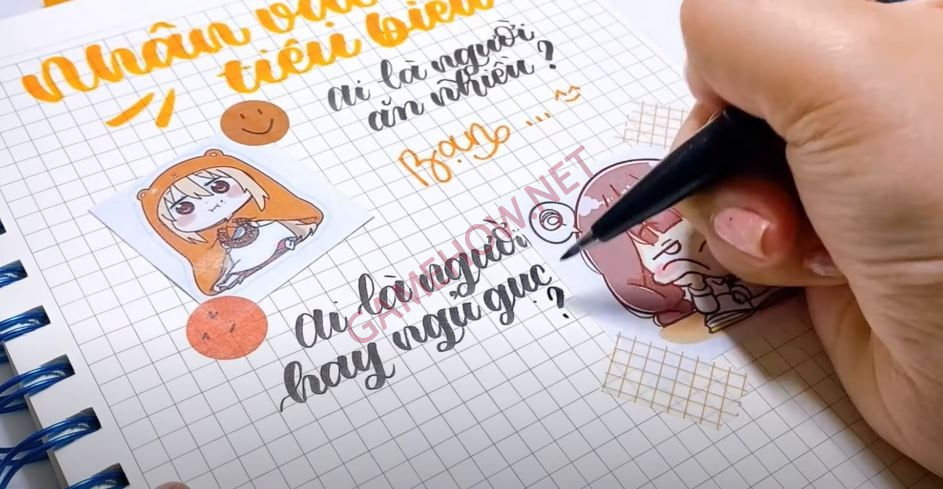 Nhân vật
tiêu biểu
ai là người
ăn nhiều?
Bạn... ^^
GAMEHOW.NET
ai là người
hay ngủ gục
?